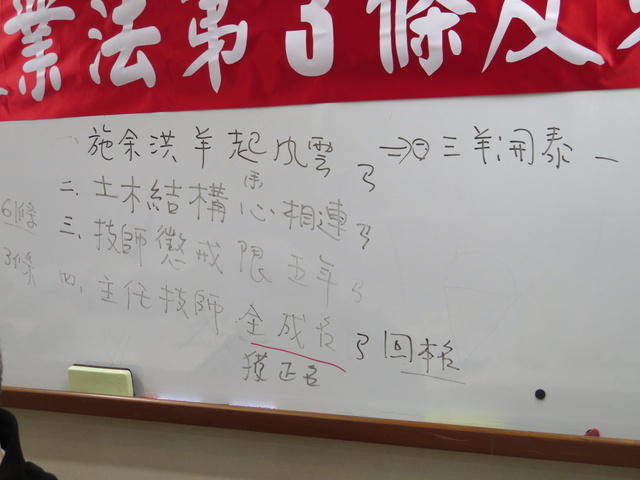 業法第3條及
一 施余洪羊起风雲 => 三羊開泰
二、土木結構心相連
系
6條
三、技師懲戒限五年
3條
四、主任技師全成名 回格
獲正名